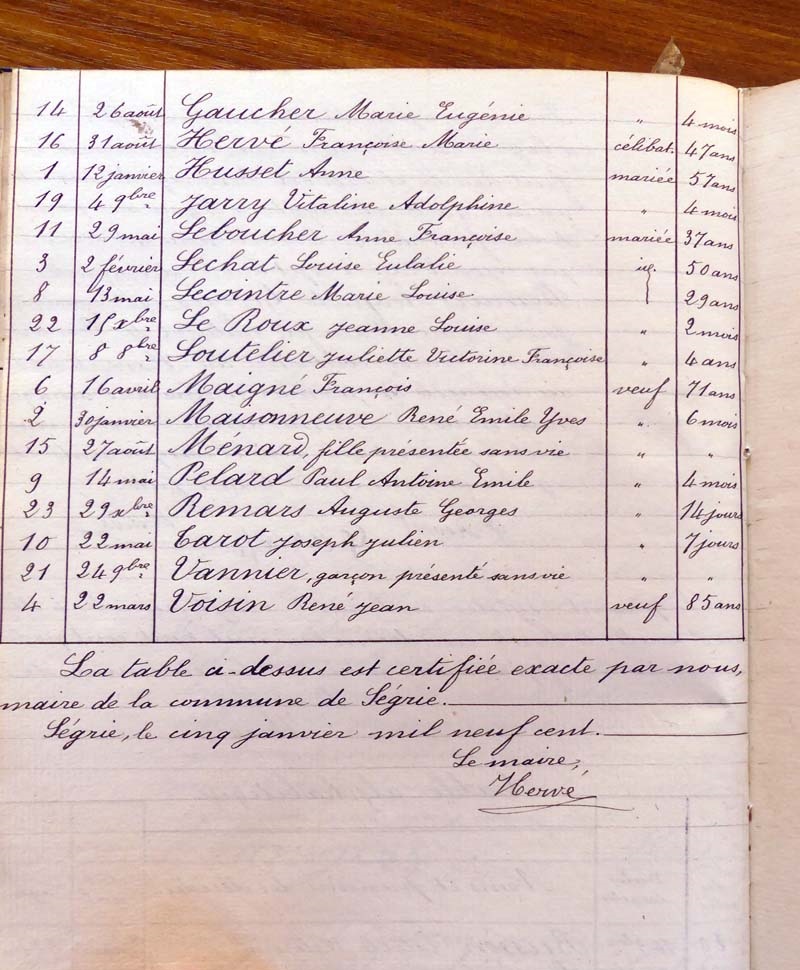 14 26 août Gaucher Marie Eugénie " 4 mois
16 31 août Hervé Françoise Marie célibat. 47 ans
1 12 janvier Husset Anne mariée 57 ans
19 4 9bre Jarry Vitaline Adolphine " 4 mois
11 29 mai Leboucher Anne Françoise mariée 37 ans
3 2 février Lechat Louise Eulalie id. 50 ans
8 13 mai Lecointre Marie Louise 29 ans
22 15 xbre Le Roux Jeanne Louise " 2 mois
17 8 8bre Loutelier Juliette Victorine Françoise " 4 ans
6 16 avril Maigné François veuf 71 ans
2 30 janvier Maisonneuve René Emile Yves " 6 mois
15 27 août Ménard, fille présentée sans vie " "
9 14 mai Pelard Paul Antoine Emile " 4 mois
23 29 xbre Remars Auguste Georges " 14 jours
10 22 mai Tarot Joseph Julien " 7 jours
21 24 9bre Vannier, garçon présenté sans vie " "
4 22 mars Voisin René Jean veuf 85 ans
La table ci-dessus est certifiée exacte par nous,
maire de la commune de Ségrie.
Ségrie, le cinq janvier mil neuf cent.
Le maire,
Hervé